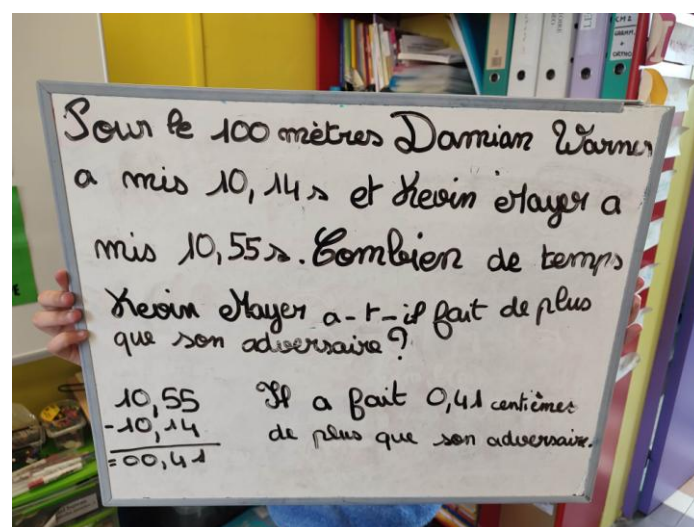 Pour le 100 mètres Damian Warner
a mis 10,14 s et Kevin Mayer a
mis 10,55 s. Combien de temps
Kevin Mayer a-t-il fait de plus
que son adversaire ?
10,55
-10,14
=00,41
Il a fait 0,41 centièmes
de plus que son adversaire.
CM2
GRAMM.
+
ORTHO